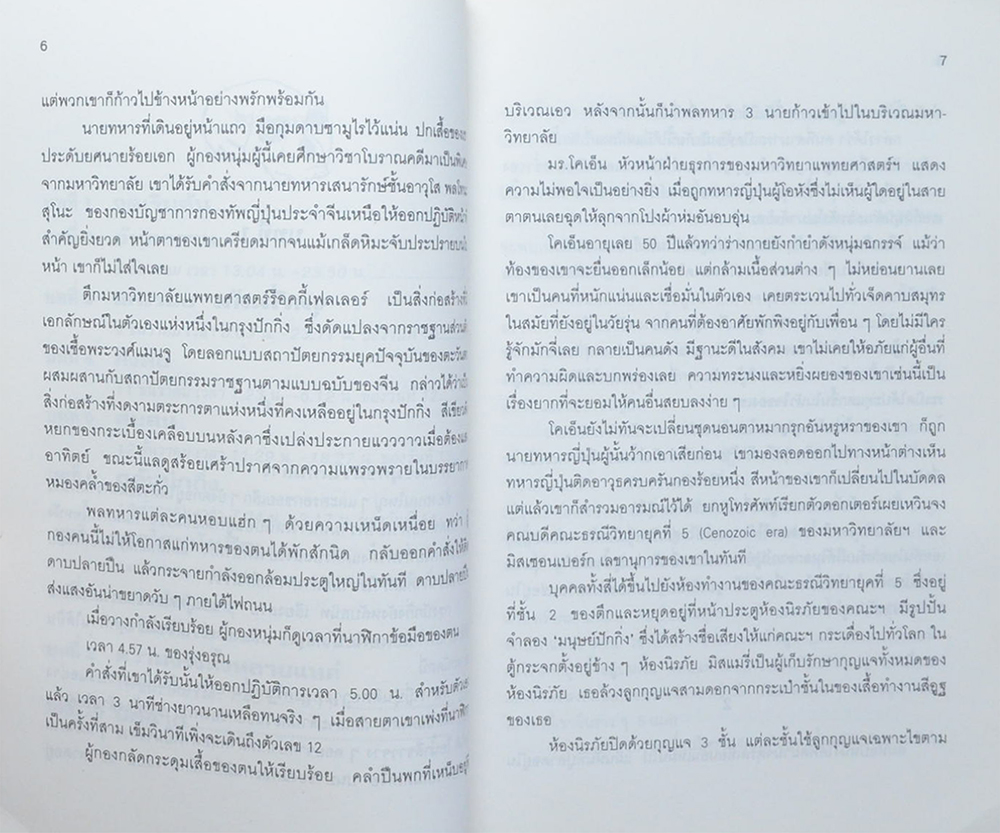 6
แต่พวกเขาก็ก้าวไปข้างหน้าอย่างพรักพร้อมกัน
นายทหารที่เดินอยู่หน้าแถว มือกุมดาบซามูไรไว้แน่น ปกเสื้อของเขา
ประดับยศนายร้อยเอก ผู้กองหนุ่มผู้นี้เคยศึกษาวิชาโบราณคดีมาเป็นพิเศษ
จากมหาวิทยาลัย เขาได้รับคำสั่งจากนายทหารเสนารักษ์ชั้นอาวุโส พลโท
สุโนะ ของกองบัญชาการกองทัพญี่ปุ่นประจำจีนเหนือให้ออกปฏิบัติหน้าที่
สำคัญยิ่งยวด หน้าตาของเขาเครียดมากจนแม้เกล็ดหิมะจับประปรายบนใบ
หน้า เขาก็ไม่ใส่ใจเลย
ตึกมหาวิทยาลัยแพทยศาสตร์ร็อคกี้เฟลเลอร์ เป็นสิ่งก่อสร้างที่
เอกลักษณ์ในตัวเองแห่งหนึ่งในกรุงปักกิ่ง ซึ่งดัดแปลงจากราชฐานส่วนตัว
ของเชื้อพระวงศ์แมนจู โดยลอกแบบสถาปัตยกรรมยุคปัจจุบันของตะวันตก
ผสมผสานกับสถาปัตยกรรมราชฐานตามแบบฉบับของจีน กล่าวได้ว่าเป็น
สิ่งก่อสร้างที่งดงามตระการตาแห่งหนึ่งที่คงเหลืออยู่ในกรุงปักกิ่ง สีเขียว
หยกของกระเบื้องเคลือบบนหลังคาซึ่งเปล่งประกายแวววาวเมื่อต้องแสง
อาทิตย์ ขณะนี้แลดูสร้อยเศร้าปราศจากความแพรวพรายในบรรยากาศ
หมองคล้ำของสีตะกั่ว
พลทหารแต่ละคนหอบแฮ่ก ๆ ด้วยความเหน็ดเหนื่อย ทว่า ผู้
กองคนนี้ไม่ให้โอกาสแก่ทหารของตนได้พักสักนิด กลับออกคำสั่งให้ติด
ดาบปลายปืน แล้วกระจายกำลังออกล้อมประตูใหญ่ในทันที ดาบปลายปืน
ส่งแสงอันน่าขยาดวับ ๆ ภายใต้ไฟถนน
เมื่อวางกำลังเรียบร้อย ผู้กองหนุ่มก็ดูเวลาที่นาฬิกาข้อมือของตน
เวลา 4.57 น. ของรุ่งอรุณ
คำสั่งที่เขาได้รับนั้นให้ออกปฏิบัติการเวลา 5.00 น. สำหรับตัวเขา
แล้ว เวลา 3 นาทีช่างยาวนานเหลือทนจริง ๆ เมื่อสายตาเขาเพ่งที่นาฬิกา
เป็นครั้งที่สาม เข็มวินาทีเพิ่งจะเดินถึงตัวเลข 12
ผู้กองกลัดกระดุมเสื้อของตนให้เรียบร้อย คลำปืนพกที่เหน็บอยู่
7
บริเวณเอว หลังจากนั้นก็นำพลทหาร 3 นายก้าวเข้าไปในบริเวณมหา-
วิทยาลัย
มร.โคเอ็น หัวหน้าฝ่ายธุรการของมหาวิทยาแพทยศาสตร์ฯ แสดง
ความไม่พอใจเป็นอย่างยิ่ง เมื่อถูกทหารญี่ปุ่นผู้โอหังซึ่งไม่เห็นผู้ใดอยู่ในสาย
ตาตนเลยฉุดให้ลุกจากโปงผ้าห่มอันอบอุ่น
โคเอ็นอายุเลย 50 ปีแล้วทว่าร่างกายยังกำยำดังหนุ่มฉกรรจ์ แม้ว่า
ท้องของเขาจะยื่นออกเล็กน้อย แต่กล้ามเนื้อส่วนต่าง ๆ ไม่หย่อนยานเลย
เขาเป็นคนที่หนักแน่นและเชื่อมั่นในตัวเอง เคยตระเวนไปทั่วเจ็ดคาบสมุทร
ในสมัยที่ยังอยู่ในวัยรุ่น จากคนที่ต้องอาศัยพักพิงอยู่กับเพื่อน ๆ โดยไม่มีใคร
รู้จักมักจี่เลย กลายเป็นคนดัง มีฐานะดีในสังคม เขาไม่เคยให้อภัยแก่ผู้อื่นที่
ทำความผิดและบกพร่องเลย ความทระนงและหยิ่งผยองของเขาเช่นนี้เป็น
เรื่องยากที่จะยอมให้คนอื่นสยบลงง่าย ๆ
โคเอ็นยังไม่ทันจะเปลี่ยนชุดนอนตาหมากรุกอันหรูหราของเขา ก็ถูก
นายทหารญี่ปุ่นผู้นั้นว้ากเอาเสียก่อน เขามองลอดออกไปทางหน้าต่างเห็น
ทหารญี่ปุ่นติดอาวุธครบครันกองร้อยหนึ่ง สีหน้าของเขาก็เปลี่ยนไปในบัดดล
แต่แล้วเขาก็สำรวมอารมณ์ไว้ได้ ยกหูโทรศัพท์เรียกตัวดอกเตอร์เผยเหวินจง
คณบดีคณะธรณีวิทยายุคที่ 5 (Cenozoic era) ของมหาวิทยาลัยฯ และ
มิสเซนเบอร์ก เลขานุการของเขาในทันที
บุคคลทั้งสี่ได้ขึ้นไปยังห้องทำงานของคณะธรณีวิทยายุคที่ 5 ซึ่งอยู่
ที่ชั้น 2 ของตึกและหยุดอยู่ที่หน้าประตูห้องนิรภัยของคณะฯ มีรูปปั้น
จำลอง 'มนุษย์ปักกิ่ง' ซึ่งได้สร้างชื่อเสียงให้แก่คณะฯ กระเดื่องไปทั่วโลก ใน
ตู้กระจกตั้งอยู่ข้าง ๆ ห้องนิรภัย มิสแมรี่เป็นผู้เก็บรักษากุญแจทั้งหมดของ
ห้องนิรภัย เธอล้วงลูกกุญแจสามดอกจากกระเป๋าชั้นในของเสื้อทำงานสีอูฐ
ของเธอ
ห้องนิรภัยปิดด้วยกุญแจ 3 ชั้น แต่ละชั้นใช้ลูกกุญแจเฉพาะไขตาม